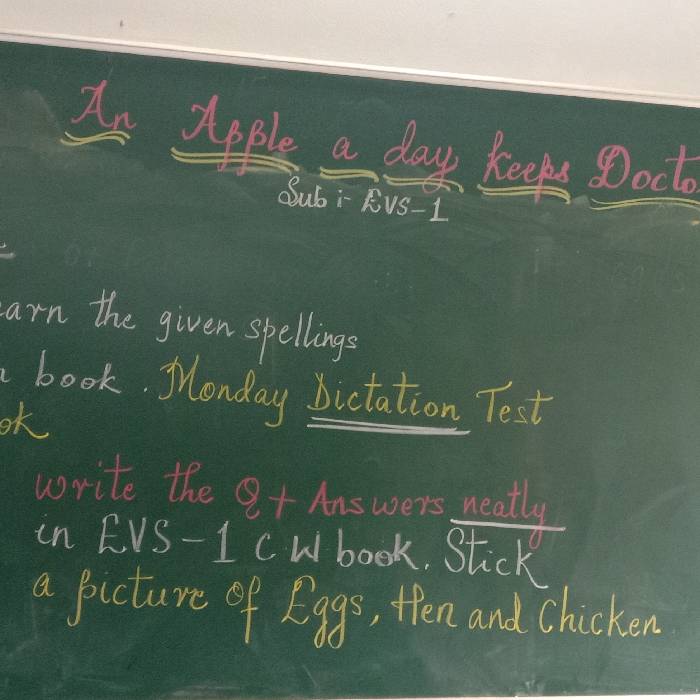 An Apple a day keeps Docto
Sub :- EVS-1
earn the given spellings
n book. Monday Dictation Test
ok
write the Q + Answers neatly
in EVS-1 C W book. Stick
a picture of Eggs, Hen and Chicken